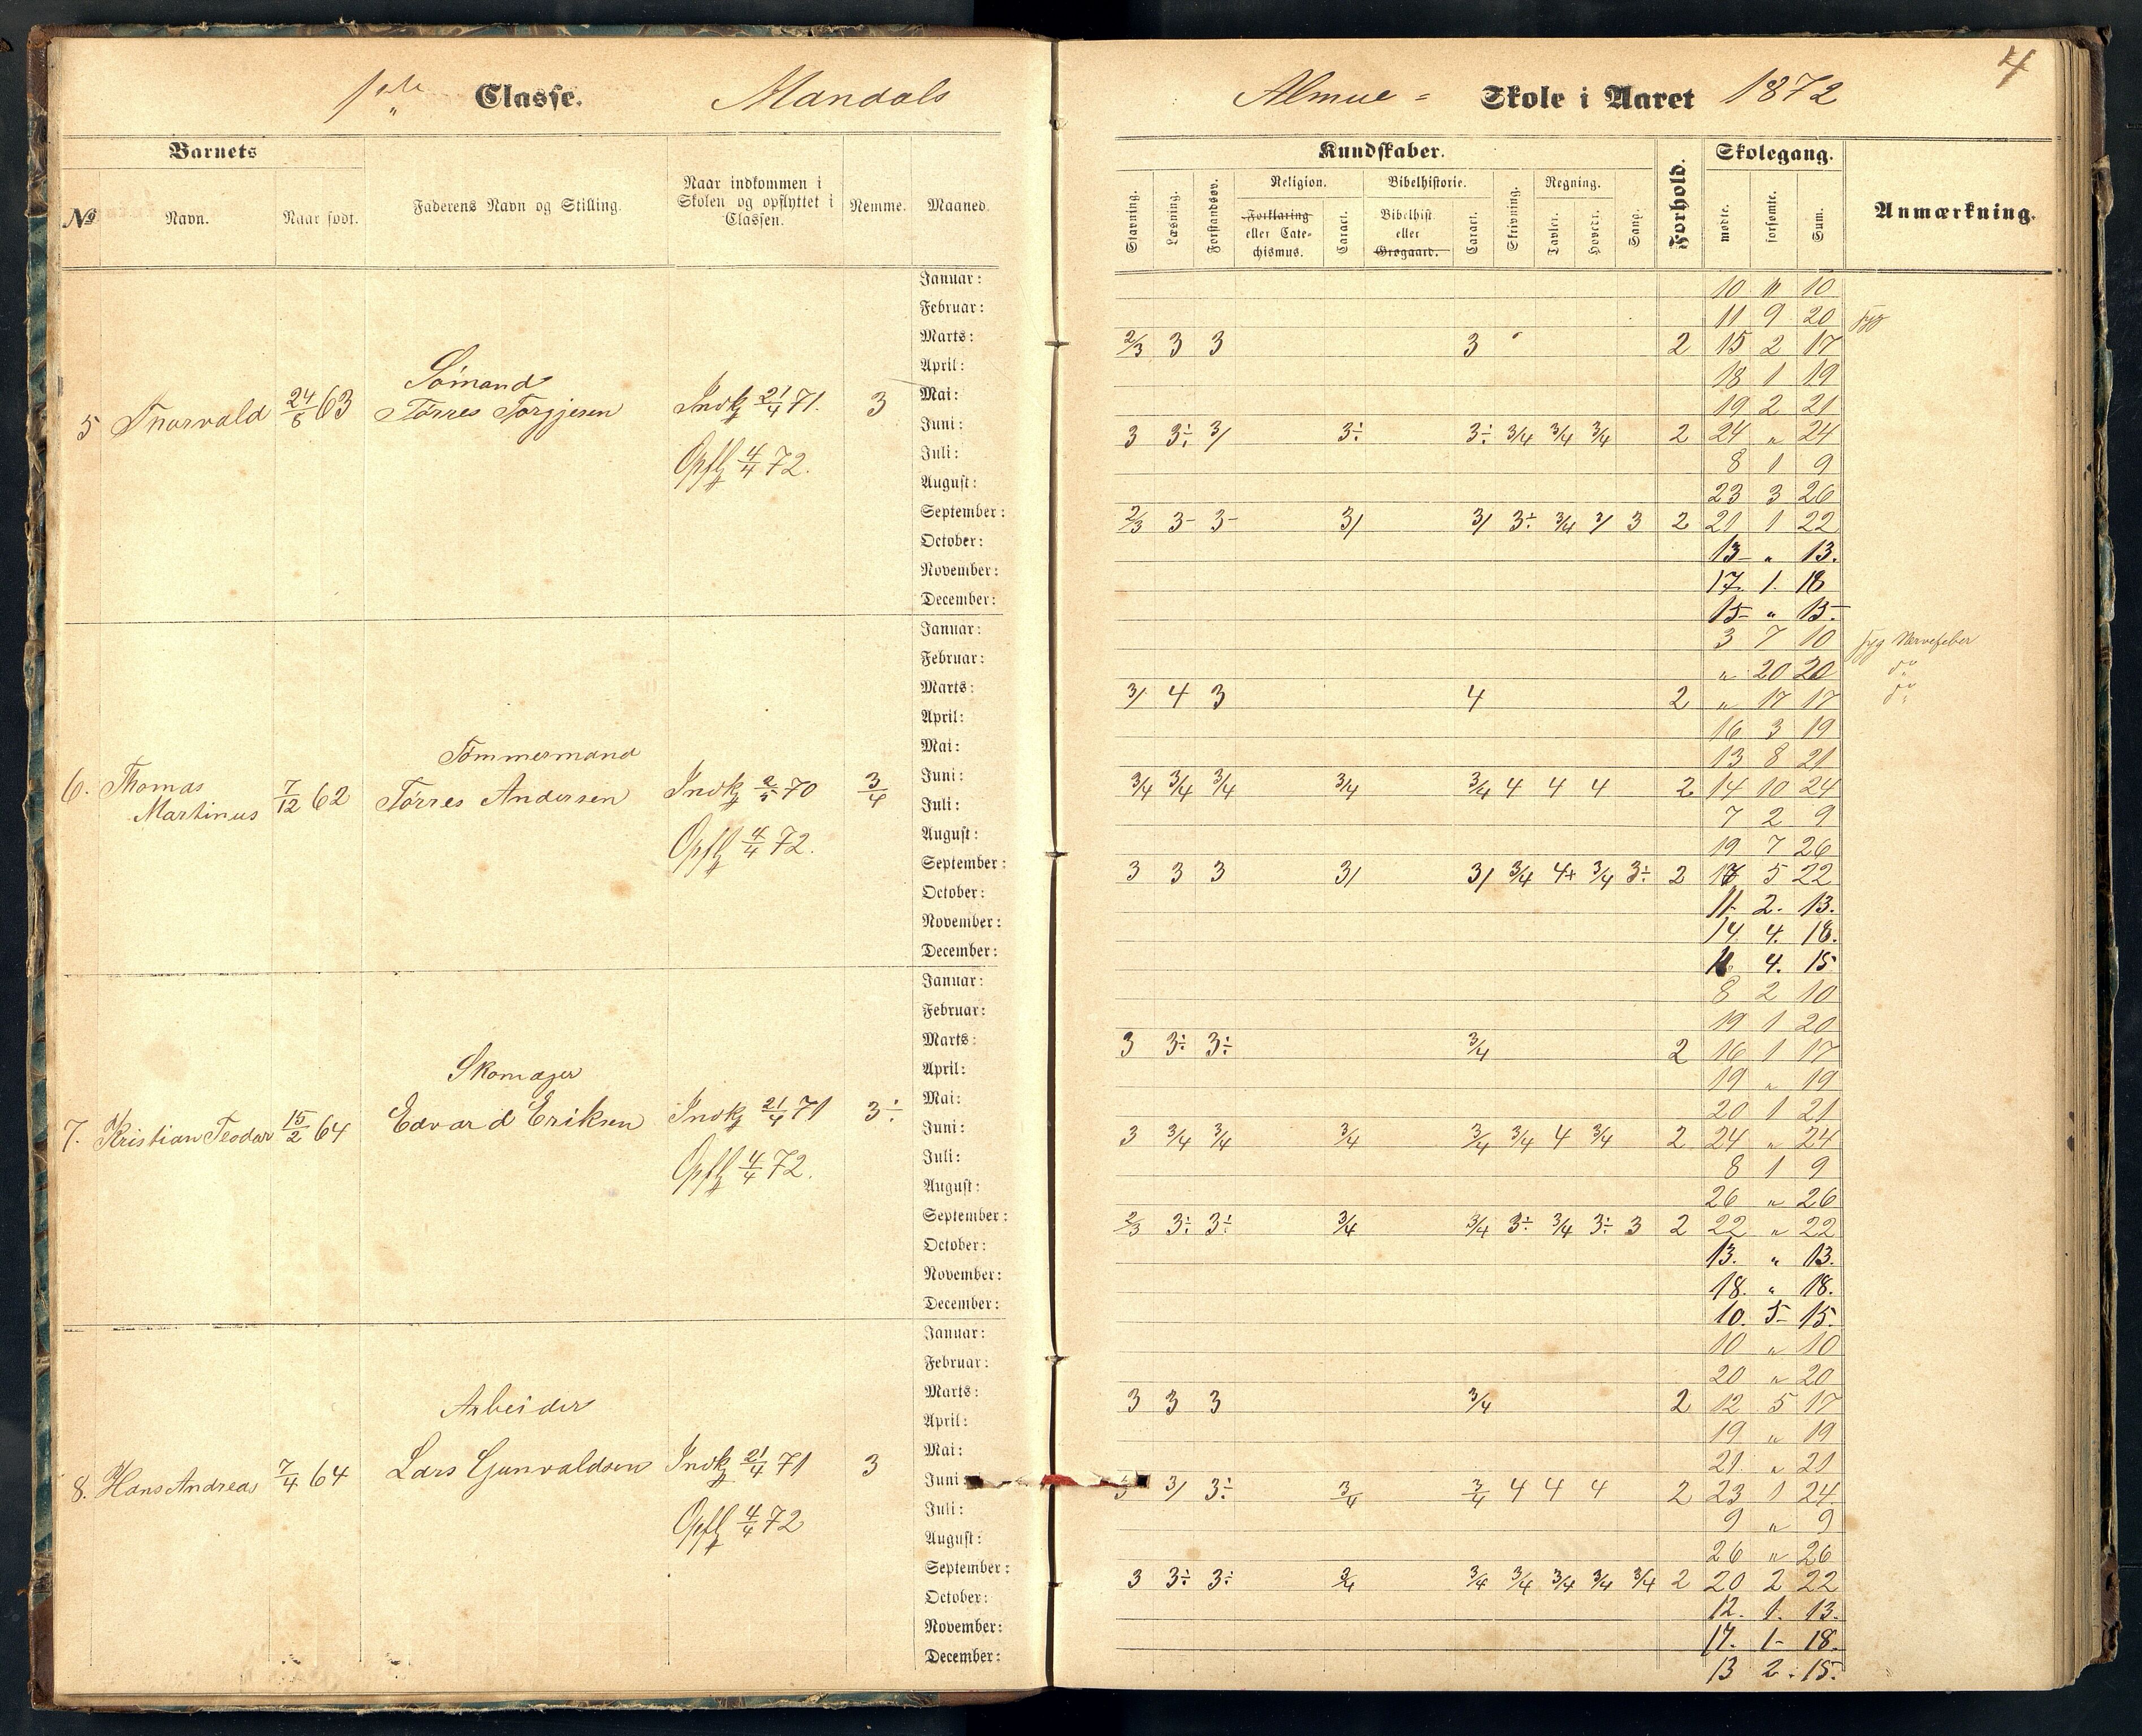 1ste Classe. Mandals
Almue- Skole i Aaret 1872
4
Barnets
№
Navn.
Naar født.
Faderens Navn og Stilling.
Naar indkommen i
Skolen og opflyttet i
Classen.
Nemme.
Maaned.
Kundskaber.
Stavning.
Læsning.
Forstandsøv.
Religion.
Forklaring
eller Cate-
chismus.
Caract.
Bibelhistorie.
Bibelhist.
eller
Grøgaard.
Caract.
Skrivning.
Regning.
Tavler.
Hoved.
Sang.
Forhold.
Skolegang.
mødte.
forsømte.
Sum.
Anmærkning.
5 Thorvald 24/8 63
Sömand
Törres Torgjesen
Indk 21/4 71.
Opfl 4/4 72.
3
Januar: 10 " 10
Februar: 11 9 20 syg
Marts: 2/3 3 3 3 2 15 2 17
April: 18 1 19
Mai: 19 2 21
Juni: 3 3÷ 3/ 3÷ 3÷ 3/4 3/4 3/4 2 24 " 24
Juli: 8 1 9
August: 23 3 26
September: 2/3 3- 3- 3/ 3/ 3÷ 3/4 3/ 3 2 21 1 22
October: 13 " 13.
November: 17. 1. 18
December: 15 " 15
6. Thomas
Martinus
7/12 62
Tömmermand
Törres Andersen
Indk 2/5 70
Opfl 4/4 72.
3/4
Januar: 3 7 10 syg Nervefeber
Februar: " 20 20 do
Marts: 3/ 4 3 4 2 " 17 17 do
April: 16 3 19
Mai: 13 8 21
Juni: 3/4 3/4 3/4 3/4 3/4 4 4 4 2 14 10 24
Juli: 7 2 9
August: 19 7 26
September: 3 3 3 3/ 3/ 3/4 4+ 3/4 3÷ 2 17 5 22
October: 11 2. 13.
November: 14. 4. 18.
December: 11 4. 15
7. Kristian Teodor 15/2 64
Skomager
Edvard Eriksen
Indk 21/4 71
Opfl 4/4 72.
3÷
Januar: 8 2 10
Februar: 19 1 20
Marts: 3 3÷ 3÷ 3/4 2 16 1 17
April: 19 " 19
Mai: 20 1 21
Juni: 3 3/4 3/4 3/4 3/4 3/4 4 3/4 2 24 " 24
Juli: 8 1 9
August: 26 " 26
September: 2/3 3÷ 3÷ 3/4 3/4 3÷ 3/4 3÷ 3 2 22 " 22
October: 13. " 13.
November: 18. " 18.
December: 10. 5 15.
8. Hans Andreas 7/4 64
Arbeider
Lars Gunvaldsen
Indk 21/4 71
Opfl 4/4 72
3
Januar: 10 " 10
Februar: 20 " 20
Marts: 3 3 3 3/4 2 12 5 17
April: 19 " 19
Mai: 21 " 21
Juni: 3/ 3÷ 3/4 3/4 4 4 4 2 23 1 24
Juli: 9 " 9
August: 26 " 26
September: 3 3÷ 3÷ 3/4 3/4 3/4 3/4 3/4 3/4 2 20 2 22
October: 12. 1. 13.
November: 17. 1- 18.
December: 13 2. 15.